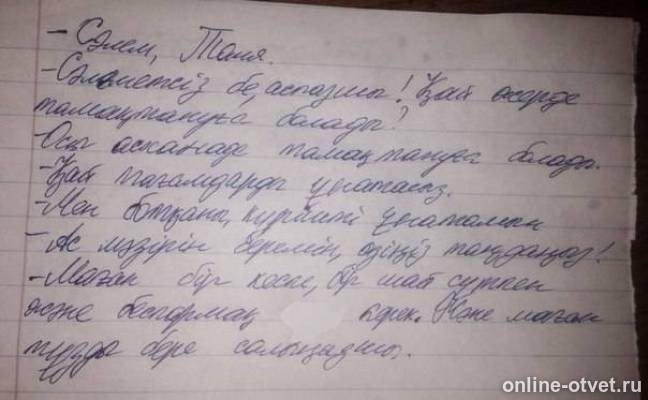 - Сәлем, Таня.
- Сәлеметсіз бе, аспазшы! Қай жерде
тамақтануға болады?
- Осы асханаде тамақтануға болады.
- Қай тағамдарды ұнатасыз.
- Мен ботқаны, күрішті ұнатамын
- Ас мәзірін беремін, өзіңіз таңдаңыз!
- Маған бір көспе, бір шай сүтпен
және беспармақ керек. Және маған
тұзда бере салыңызшы.
online-otvet.ru